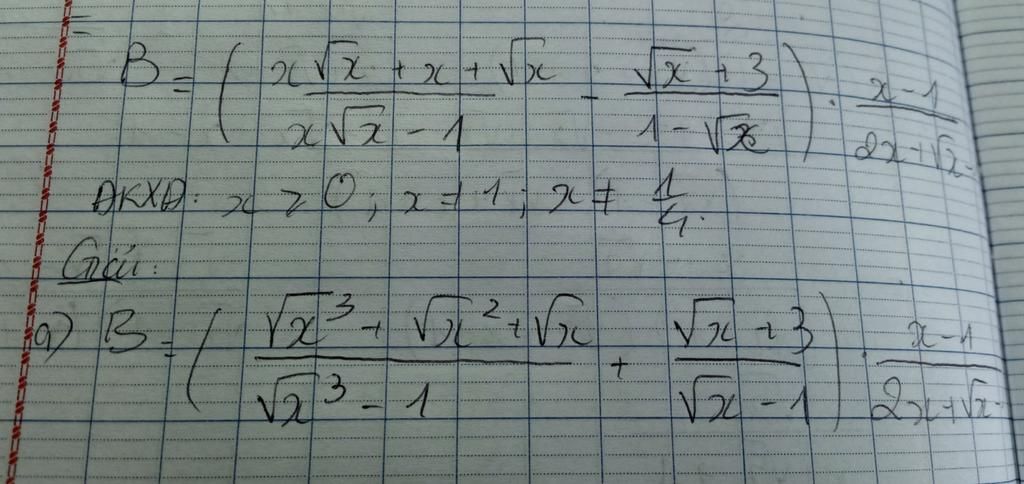 B = ( (x√x + x + √x)/(x√x - 1) - (√x + 3)/(1 - √x) ) . (x - 1)/(2x + √x -
ĐKXĐ: x ≥ 0; x ≠ 1; x ≠ 1/4.
Giải:
a) B = ( (√x³ + √x² + √x)/(√x³ - 1) + (√x + 3)/(√x - 1) ) . (x - 1)/(2x + √x -